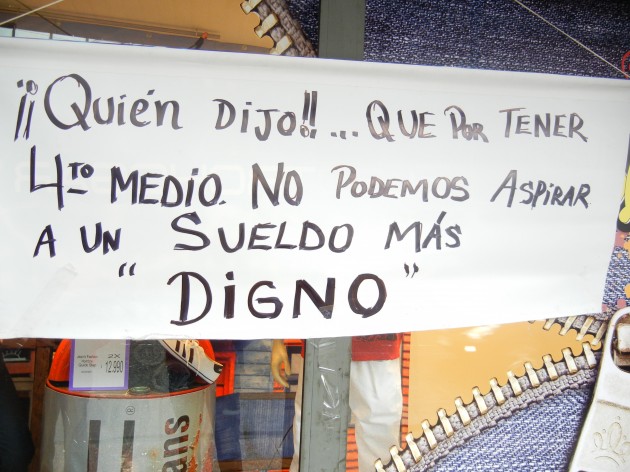 ¡¡Quién DiJo!!... QUE POR TENER
4TO MEDIO NO PODEMOS ASPiRAR
A UN SUELDO MÁS
"DiGNO"
2X
12.990
ans